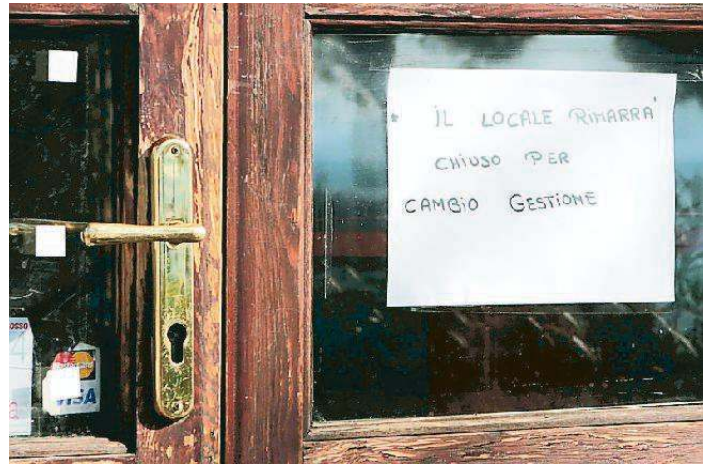 IL LOCALE RIMARRA'
CHIUSO PER
CAMBIO GESTIONE
OSSO
VISA